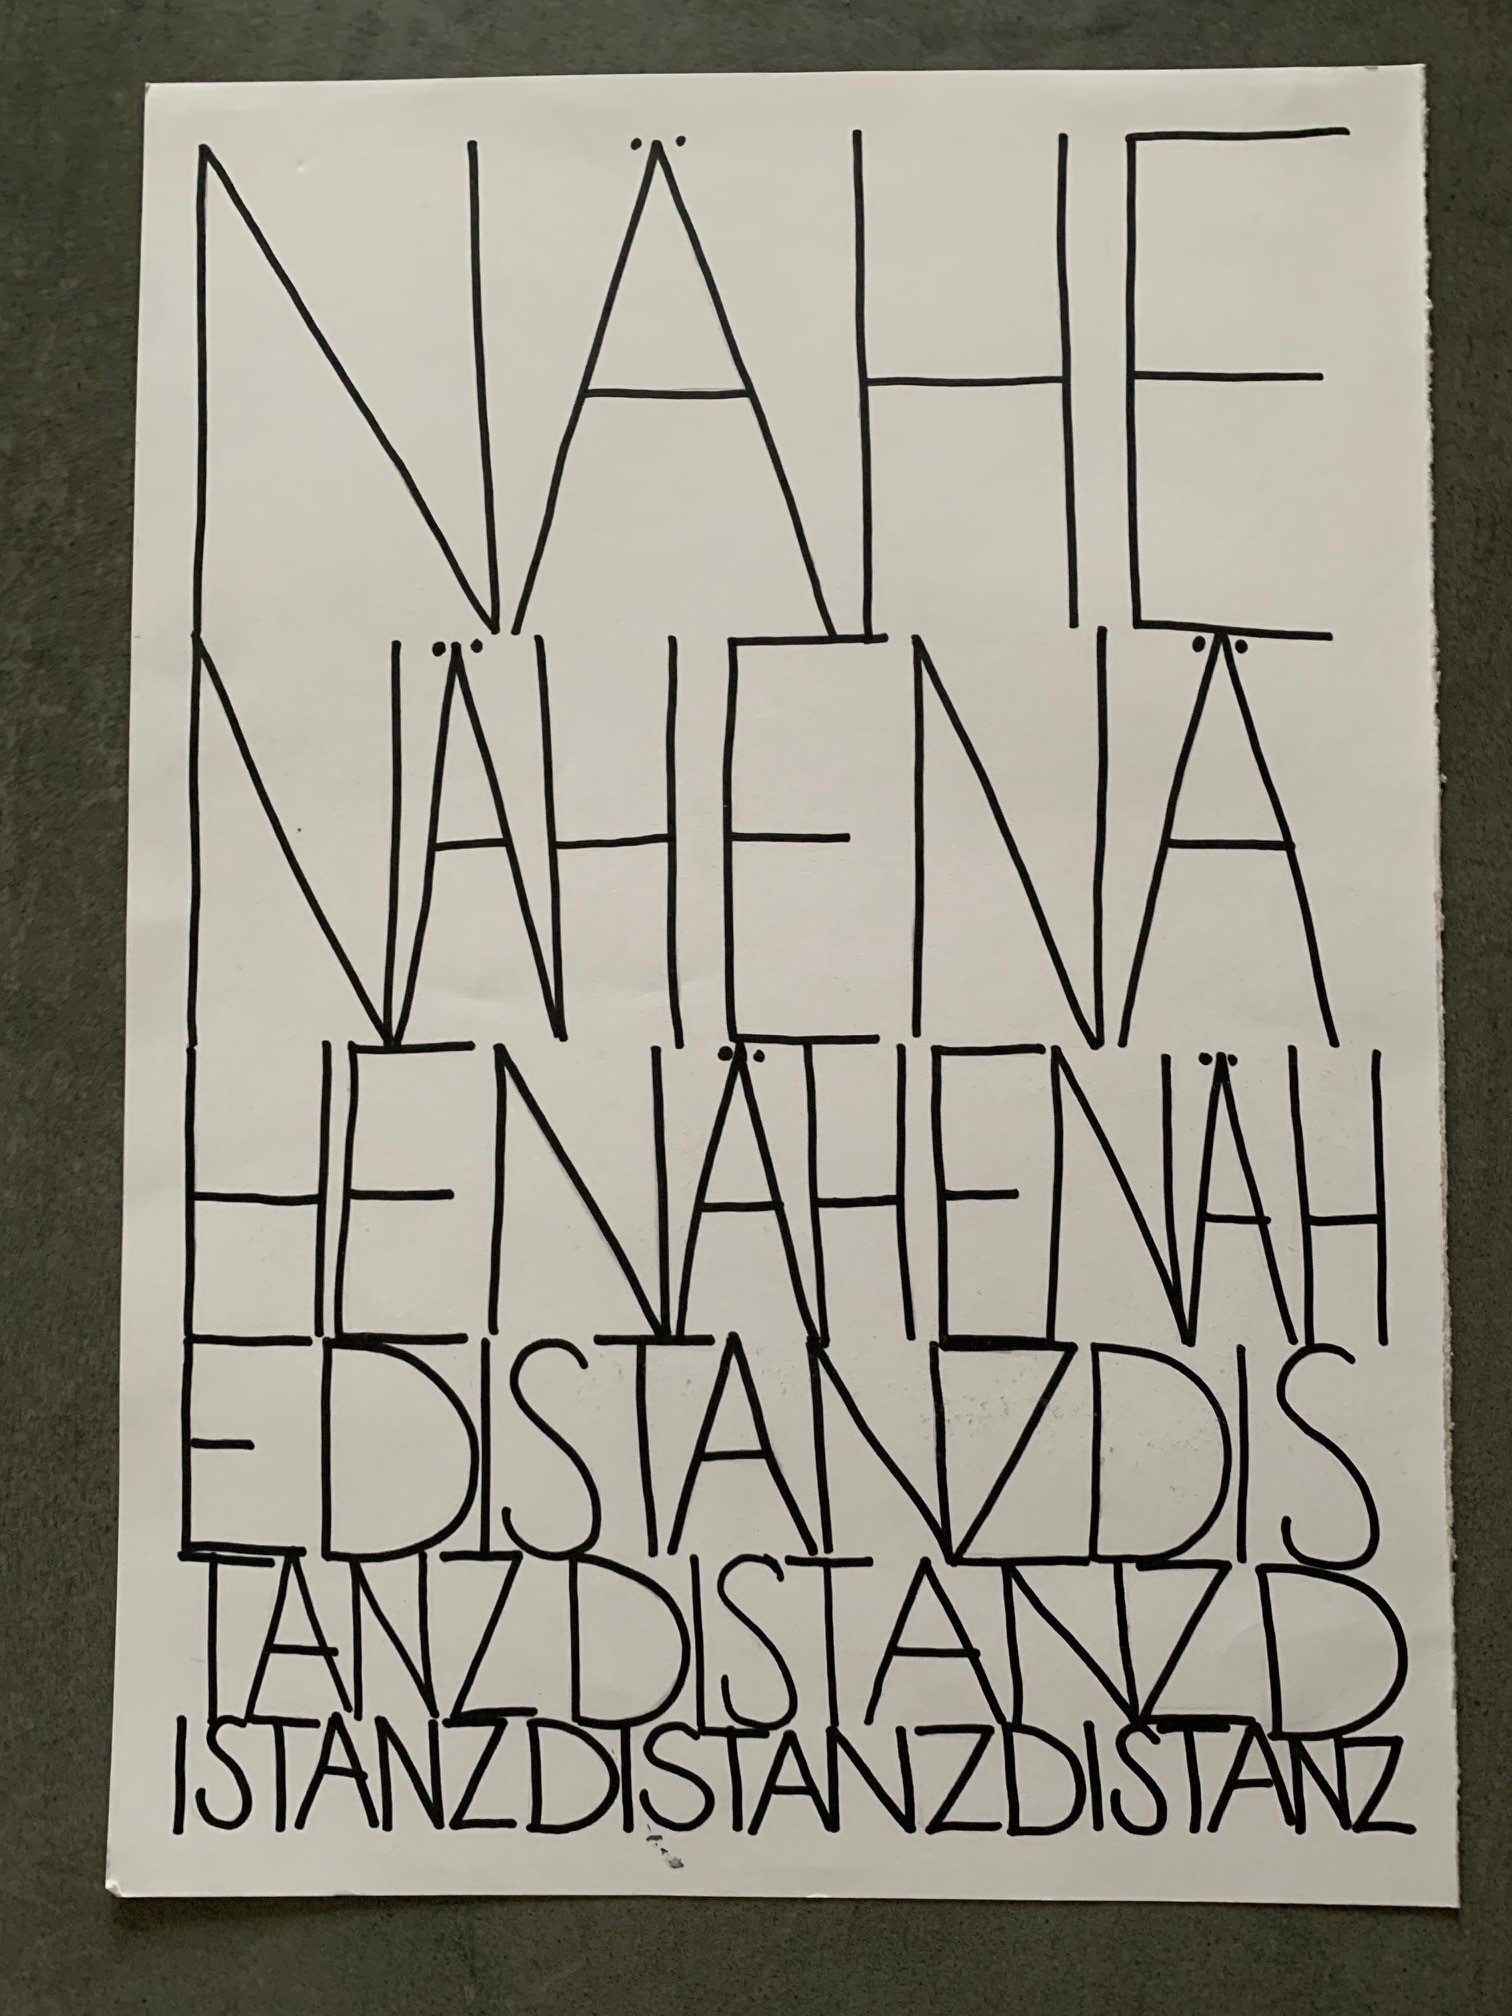 NÄHE
NÄHENÄ
HENÄHENÄH
EDISTANZDIS
TANZDISTANZD
ISTANZDISTANZDISTANZ